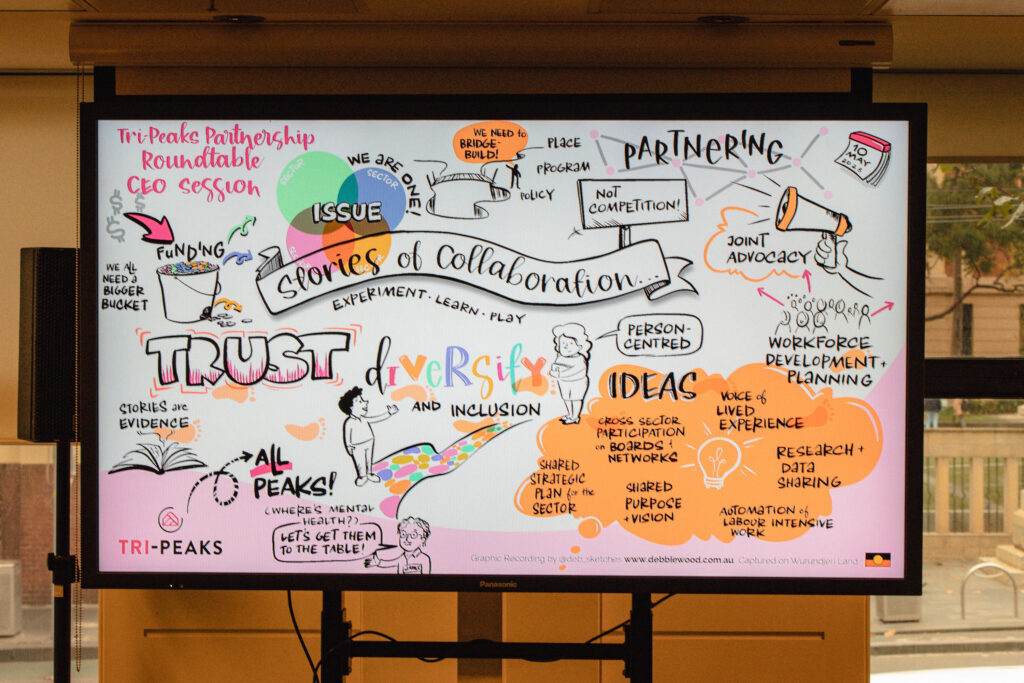 Tri-Peaks Partnership
Roundtable
CEO Session
SECTOR
SECTOR
SECTOR
ISSUE
WE ARE ONE!
WE NEED to
BRIDGE-
BUILD!
PLACE
PROGRAM
POLICY
PARTNERING
10
MAY
2023
NOT
COMPETITION!
JOINT
ADVOCACY
$
$
$
FUNDING
WE ALL
NEED a
BIGGER
BUCKET
Stories of Collaboration...
EXPERIMENT · LEARN · PLAY
WORKFORCE
DEVELOPMENT +
PLANNING
TRUST
diversity
AND INCLUSION
PERSON-
CENTRED
STORIES are
EVIDENCE
ALL
PEAKS!
(WHERE'S MENTAL
HEALTH?)
LET'S GET THEM
TO THE TABLE!
TRI-PEAKS
IDEAS
CROSS SECTOR
PARTICIPATION
on BOARDS +
NETWORKS
VOICE of
LIVED
EXPERIENCE
RESEARCH +
DATA
SHARING
SHARED
STRATEGIC
PLAN for the
SECTOR
SHARED
PURPOSE
+ VISION
AUTOMATION of
LABOUR INTENSIVE
WORK
Graphic Recording by @deb_sketches www.debblewood.com.au Captured on Wurundjeri Land
Panasonic